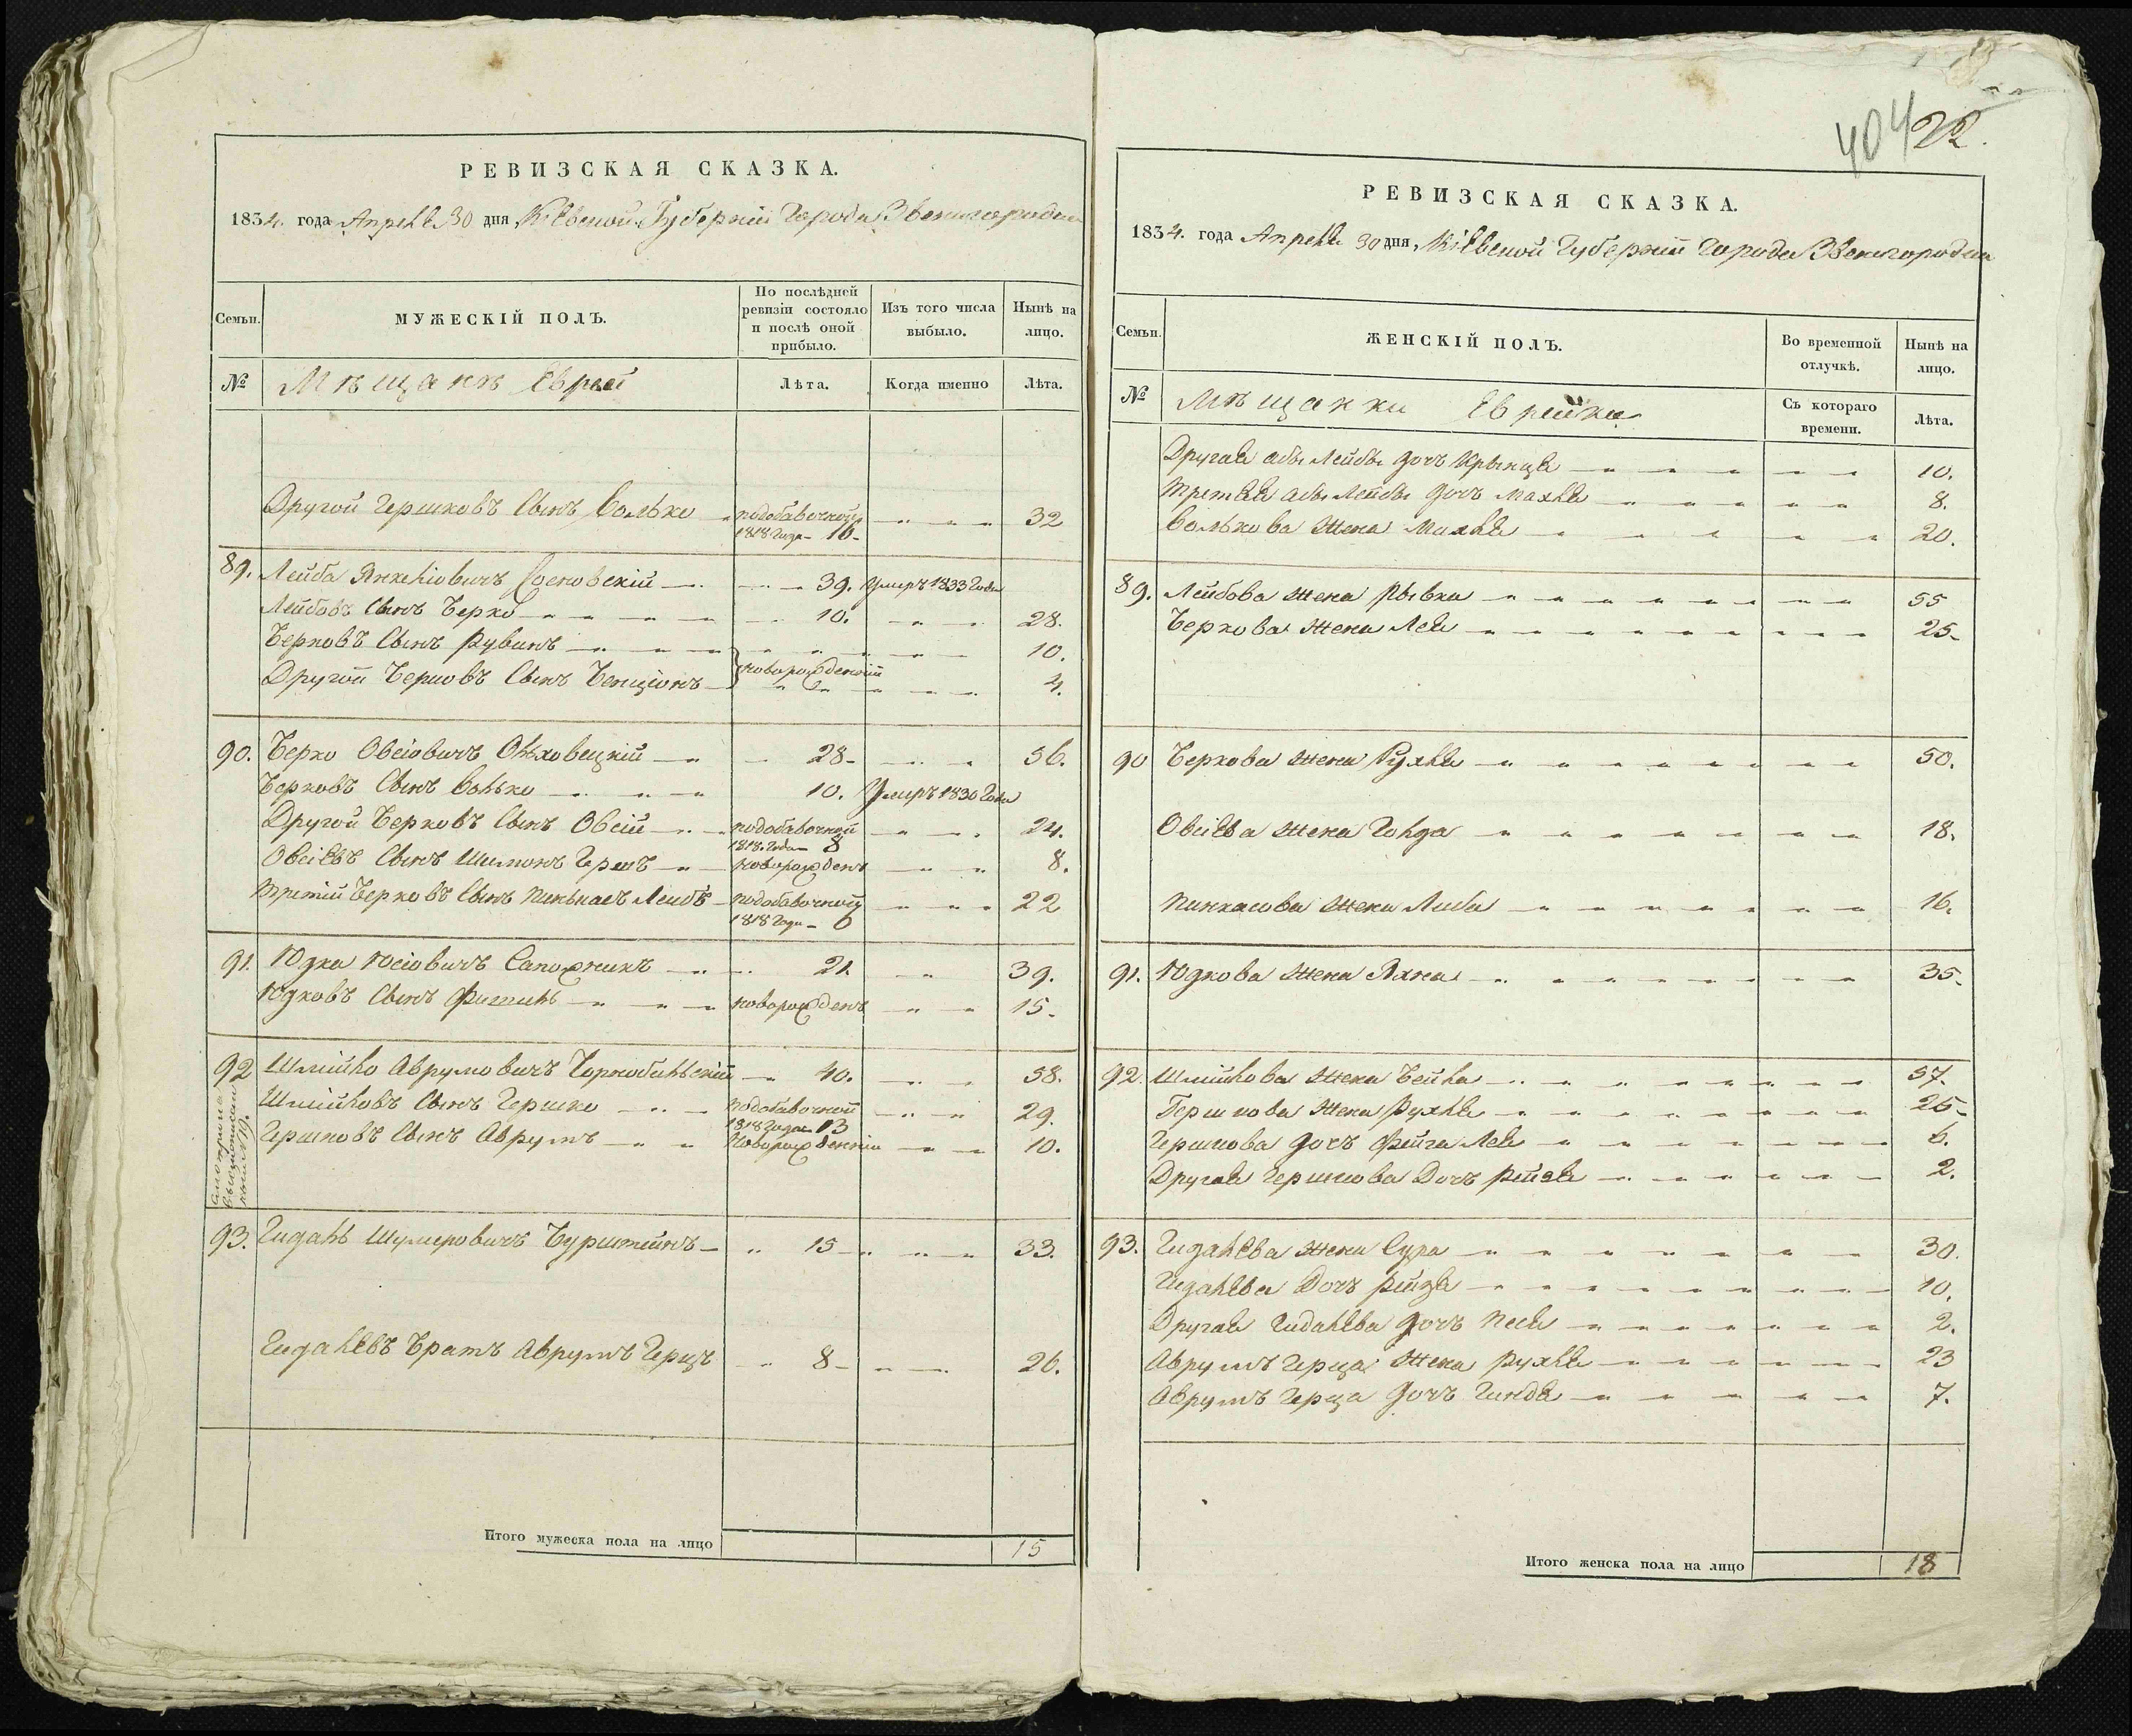 РЕВИЗСКАЯ СКАЗКА.
1834. года Апреля 30 дня, Кіевской Губерніи Города Звенигородки
Семьи. МУЖЕСКІЙ ПОЛЪ. По послѣдней ревизіи состояло и послѣ оной прибыло. Изъ того числа выбыло. Нынѣ на лицо.
№ Мѣщанѣ Евреи Лѣта. Когда именно Лѣта.
Другой Гершковъ Сынъ Волько подобавочной 1818 года - 16 - 32
89. Лейба Янкеліовичъ Сосновскій 39. Умеръ 1833 Года
Лейбовъ Сынъ Берко 10. 28.
Берковъ Сынъ Рувинъ 10.
новорожденніи
Другой Берковъ Сынъ Бенціонъ 4.
90. Берко Овсіовичъ Ольховецкій 28 - 56.
Берковъ Сынъ Волько 10. Умеръ 1830 Года
Другой Берковъ Сынъ Овсій подобавочной 1818. Года - 8 24.
Овсіевъ Сынъ Шимонъ Гершъ новорожденъ 8.
Третій Берковъ Сынъ Пинькасъ Лейбъ подобавочной 1818 Года - 6 22
91. Юдка Юсіовичъ Сапожникъ 21. 39.
Юдковъ Сынъ Фишель новорожденъ 15.
92 Шмійло Аврумовичъ Чорнобильскій 40. 58.
Шмійловъ Сынъ Гершко подобавочной 1818 Года 13 29.
Гершковъ Сынъ Аврумъ Новорожденніи 10.
93. Гидаль Шумеровичъ Бурштейнъ 15 33.
Гидалевъ Братъ Аврумъ Герцъ 8 - 26.
Итого мужеска пола на лицо 15
404 22.
РЕВИЗСКАЯ СКАЗКА.
1834. года Апреля 30 дня, Кіевской Губерніи Города Звенигородки
Семьи. ЖЕНСКІЙ ПОЛЪ. Во временной отлучкѣ. Нынѣ на лицо.
№ Мѣщанки Еврейки Съ котораго времени. Лѣта.
Другая абы Лейбы дочъ Крынця 10.
Третяя абы Лейбы дочъ Махля 8.
Волькова Жена Махля 20.
89. Лейбова Жена Рывка 55
Беркова Жена Лея 25.
90 Беркова Жена Рухля 50.
Овсіева Жена Голда 18.
Пинкасова Жена Либа 16.
91. Юдкова Жена Яхна 35.
92. Шмійлова Жена Бейла 57.
Гершкова Жена Рухля 25.
Гершкова дочъ Фейга Лея 6.
Другая Гершкова Дочъ Рейзя 2.
93. Гидалева Жена Сура 30.
Гидалева Дочъ Рейзя 10.
Другая Гидалева дочъ Песя 2.
Аврумъ Герца Жена Рухля 23
Аврумъ Герца дочъ Гиндя 7.
Итого женска пола на лицо 18